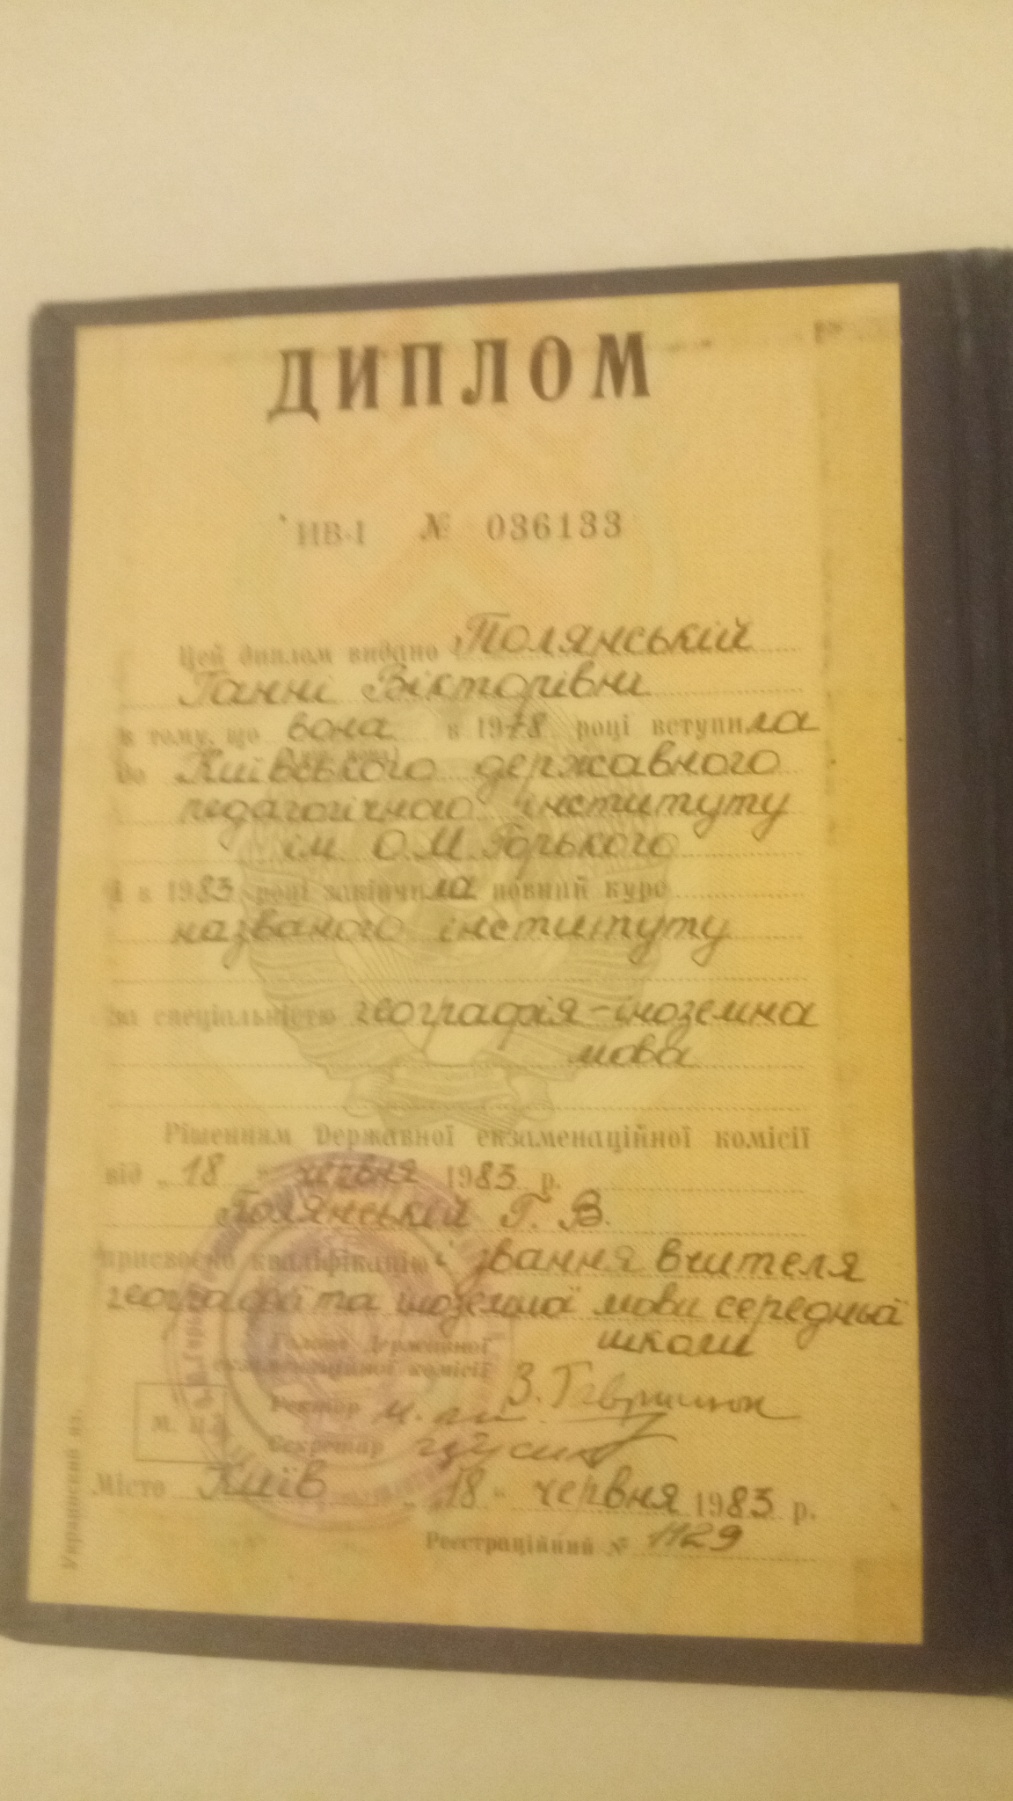 ДИПЛОМ
ИВ-І № 036133
Цей диплом видано Полянській
Ганні Вікторівні
в тому, що вона в 1978 році вступила
до Київського державного
педагогічного інституту
ім. О.М. Горького
і в 1983 році закінчила повний курс
названого інституту
за спеціальністю географія-іноземна
мова
Рішенням Державної екзаменаційної комісії
від „18" червня 1983 р.
Полянській Г. В.
присвоєно кваліфікацію і звання вчителя
географії та іноземної мови середньої
школи
Голова Державної
екзаменаційної комісії
Ректор
М. П.
Секретар
Місто Київ „18" червня 1983 р.
Реєстраційний № 1129
Украинский яз.